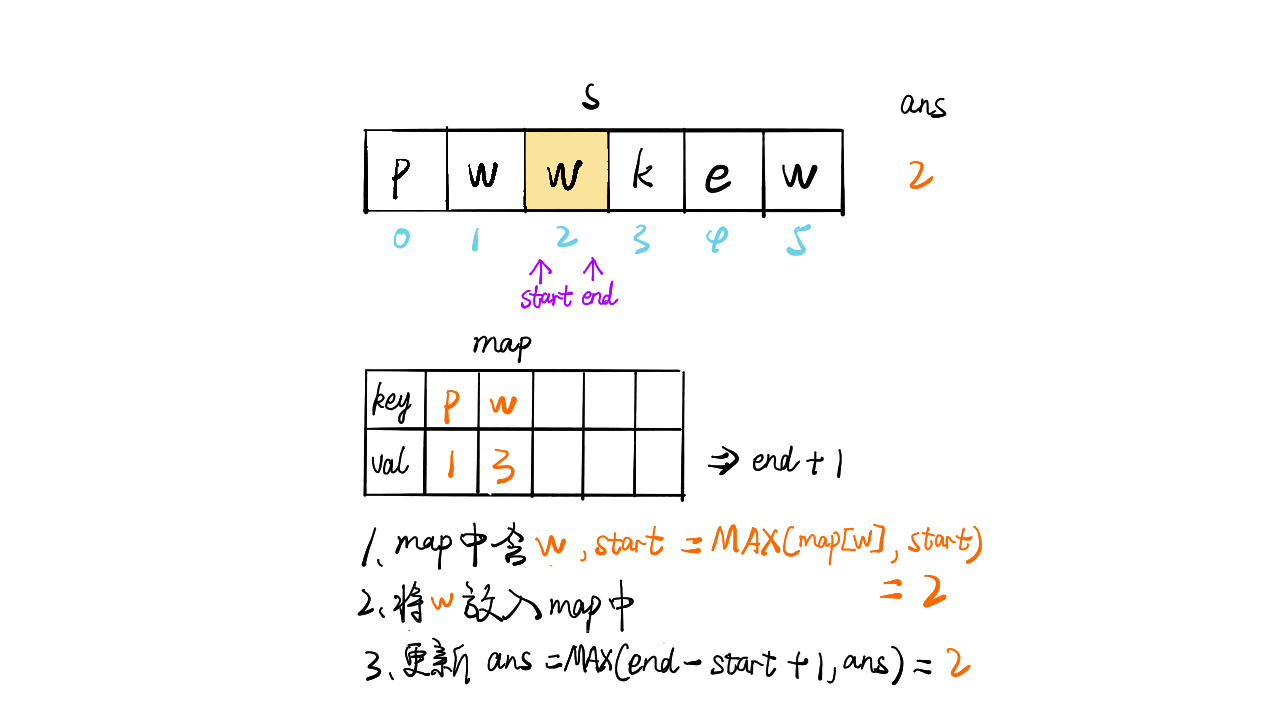 s
ans
p w w k e w
2
0 1 2 3 4 5
start end
map
key p w
val 1 3
⇒ end + 1
1、map中含w, start = MAX(map[w], start)
= 2
2、将w放入map中
3、更新 ans = MAX(end - start + 1, ans) = 2